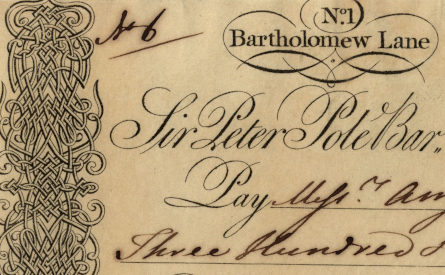 No. 6
No. 1
Bartholomew Lane
Sir Peter Pole Bar,,
Pay Messrs. 
Three Hundred